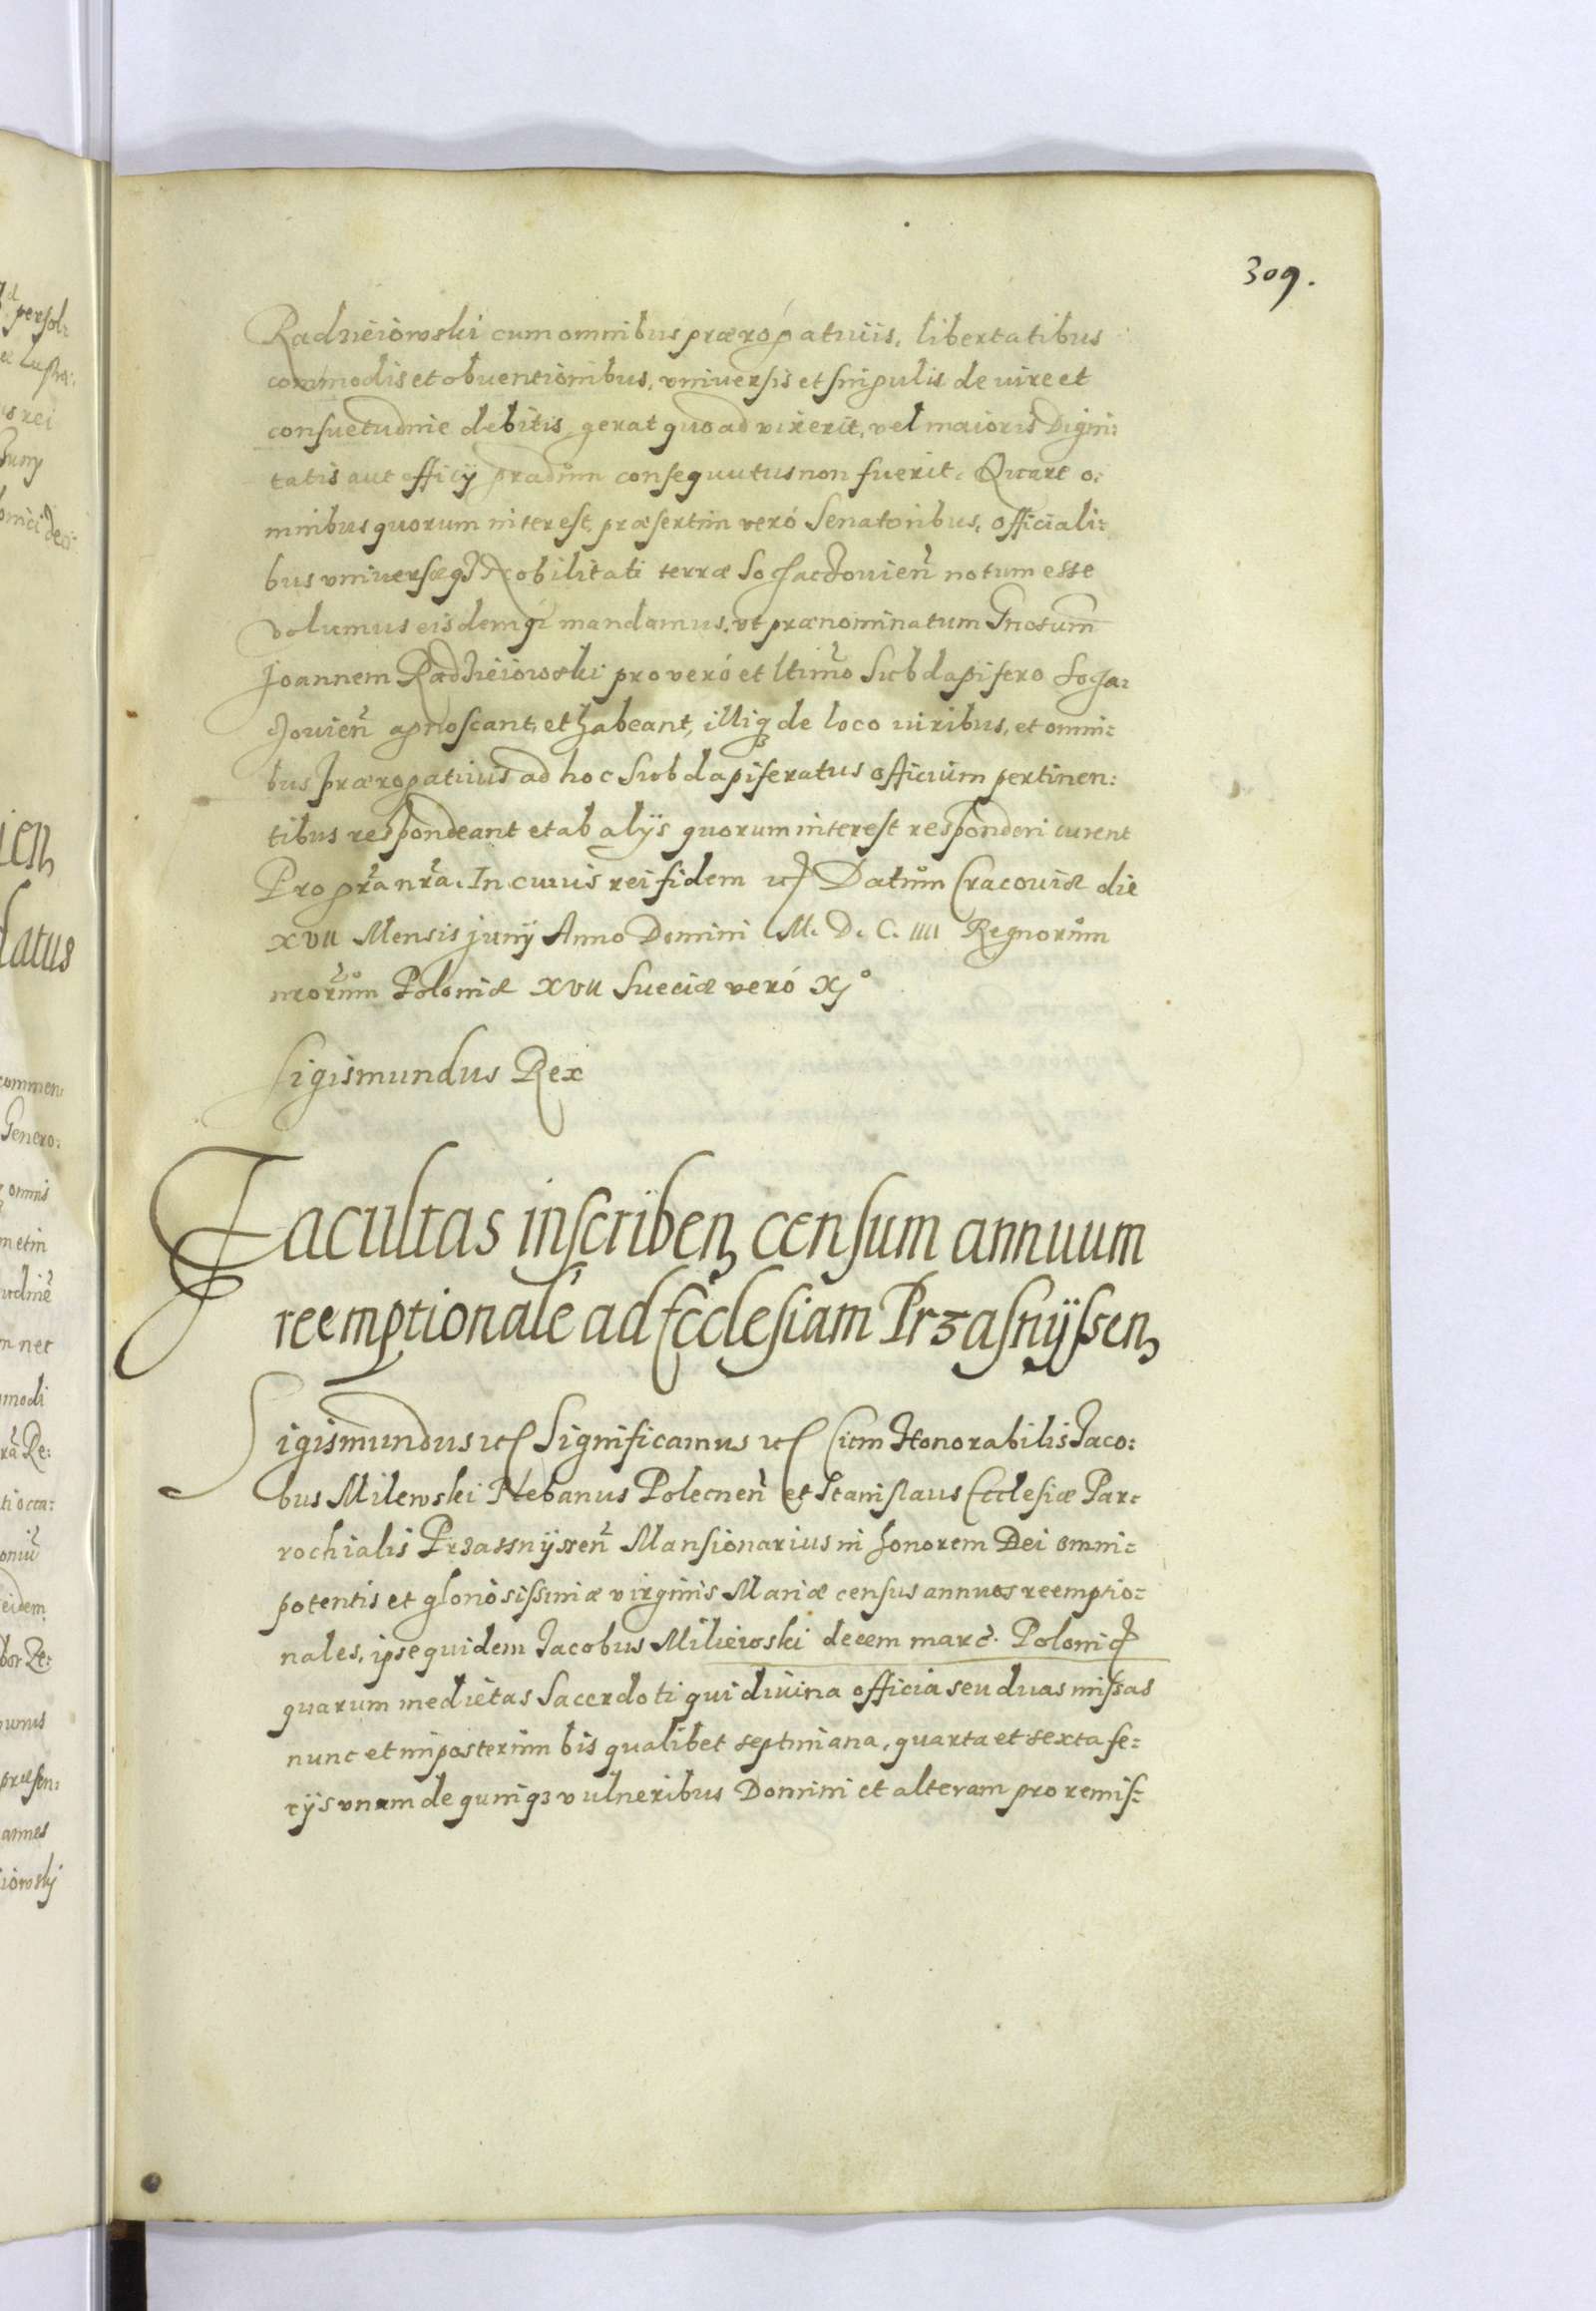 309.
Radzieiowski cum omnibus prærogatiuis, libertatibus
commodis et obuentionibus, vniuersis et singulis de iure et
consuetudine debitis gerat quoad vixerit, vel maioris Digni:
tatis aut officij gradum consequutus non fuerit. Quare o:
mnibus quorum interest, præsertim veró Senatoribus, Officiali:
bus vniuersæq3 Nobilitati terræ Sochaczouien̄ notum esse
volumus eisdemq3 mandamus, vt prænominatum Gnosum̄
Joannem Radzieiowski pro veró et ltimo Subdapifero Socha:
czouien̄ agnoscant, et habeant, illiq3 de loco iuribus, et omni:
bus prærogatiuis ad hoc Subdapiferatus officium pertinen:
tibus respondeant et ab alijs quorum interest responderi curent
Pro gr̄a nr̄a. In cuius rei fidem etc Datum Cracouiæ die
XVII Mensis junij Anno Domini M. D. C. IIII Regnorum
nrorum Poloniæ XVII Sueciæ veró XI°
Sigismundus Rex
Facultas inscriben, censum annuum
reemptionalē ad Ecclesiam Przasnyssen,
Sigismundus etc Significamus etc Cum Honorabilis Jaco:
bus Milewski Plebanus Polecnen̄ et Stanislaus Ecclesiæ Par:
rochialis Przassnyssen̄ Mansionarius in honorem Dei omni:
potentis et gloriosissimæ virginis Mariæ census annuos reemptio:
nales, ipse quidem Jacobus Milewski decem marc̄. Polonic
quarum medietas Sacerdoti qui diuina officia seu duas missas
nunc et imposterum bis qualibet septimana, quarta et sexta fe:
rijs vnam de quinq3 vulneribus Domini et alteram pro remis: